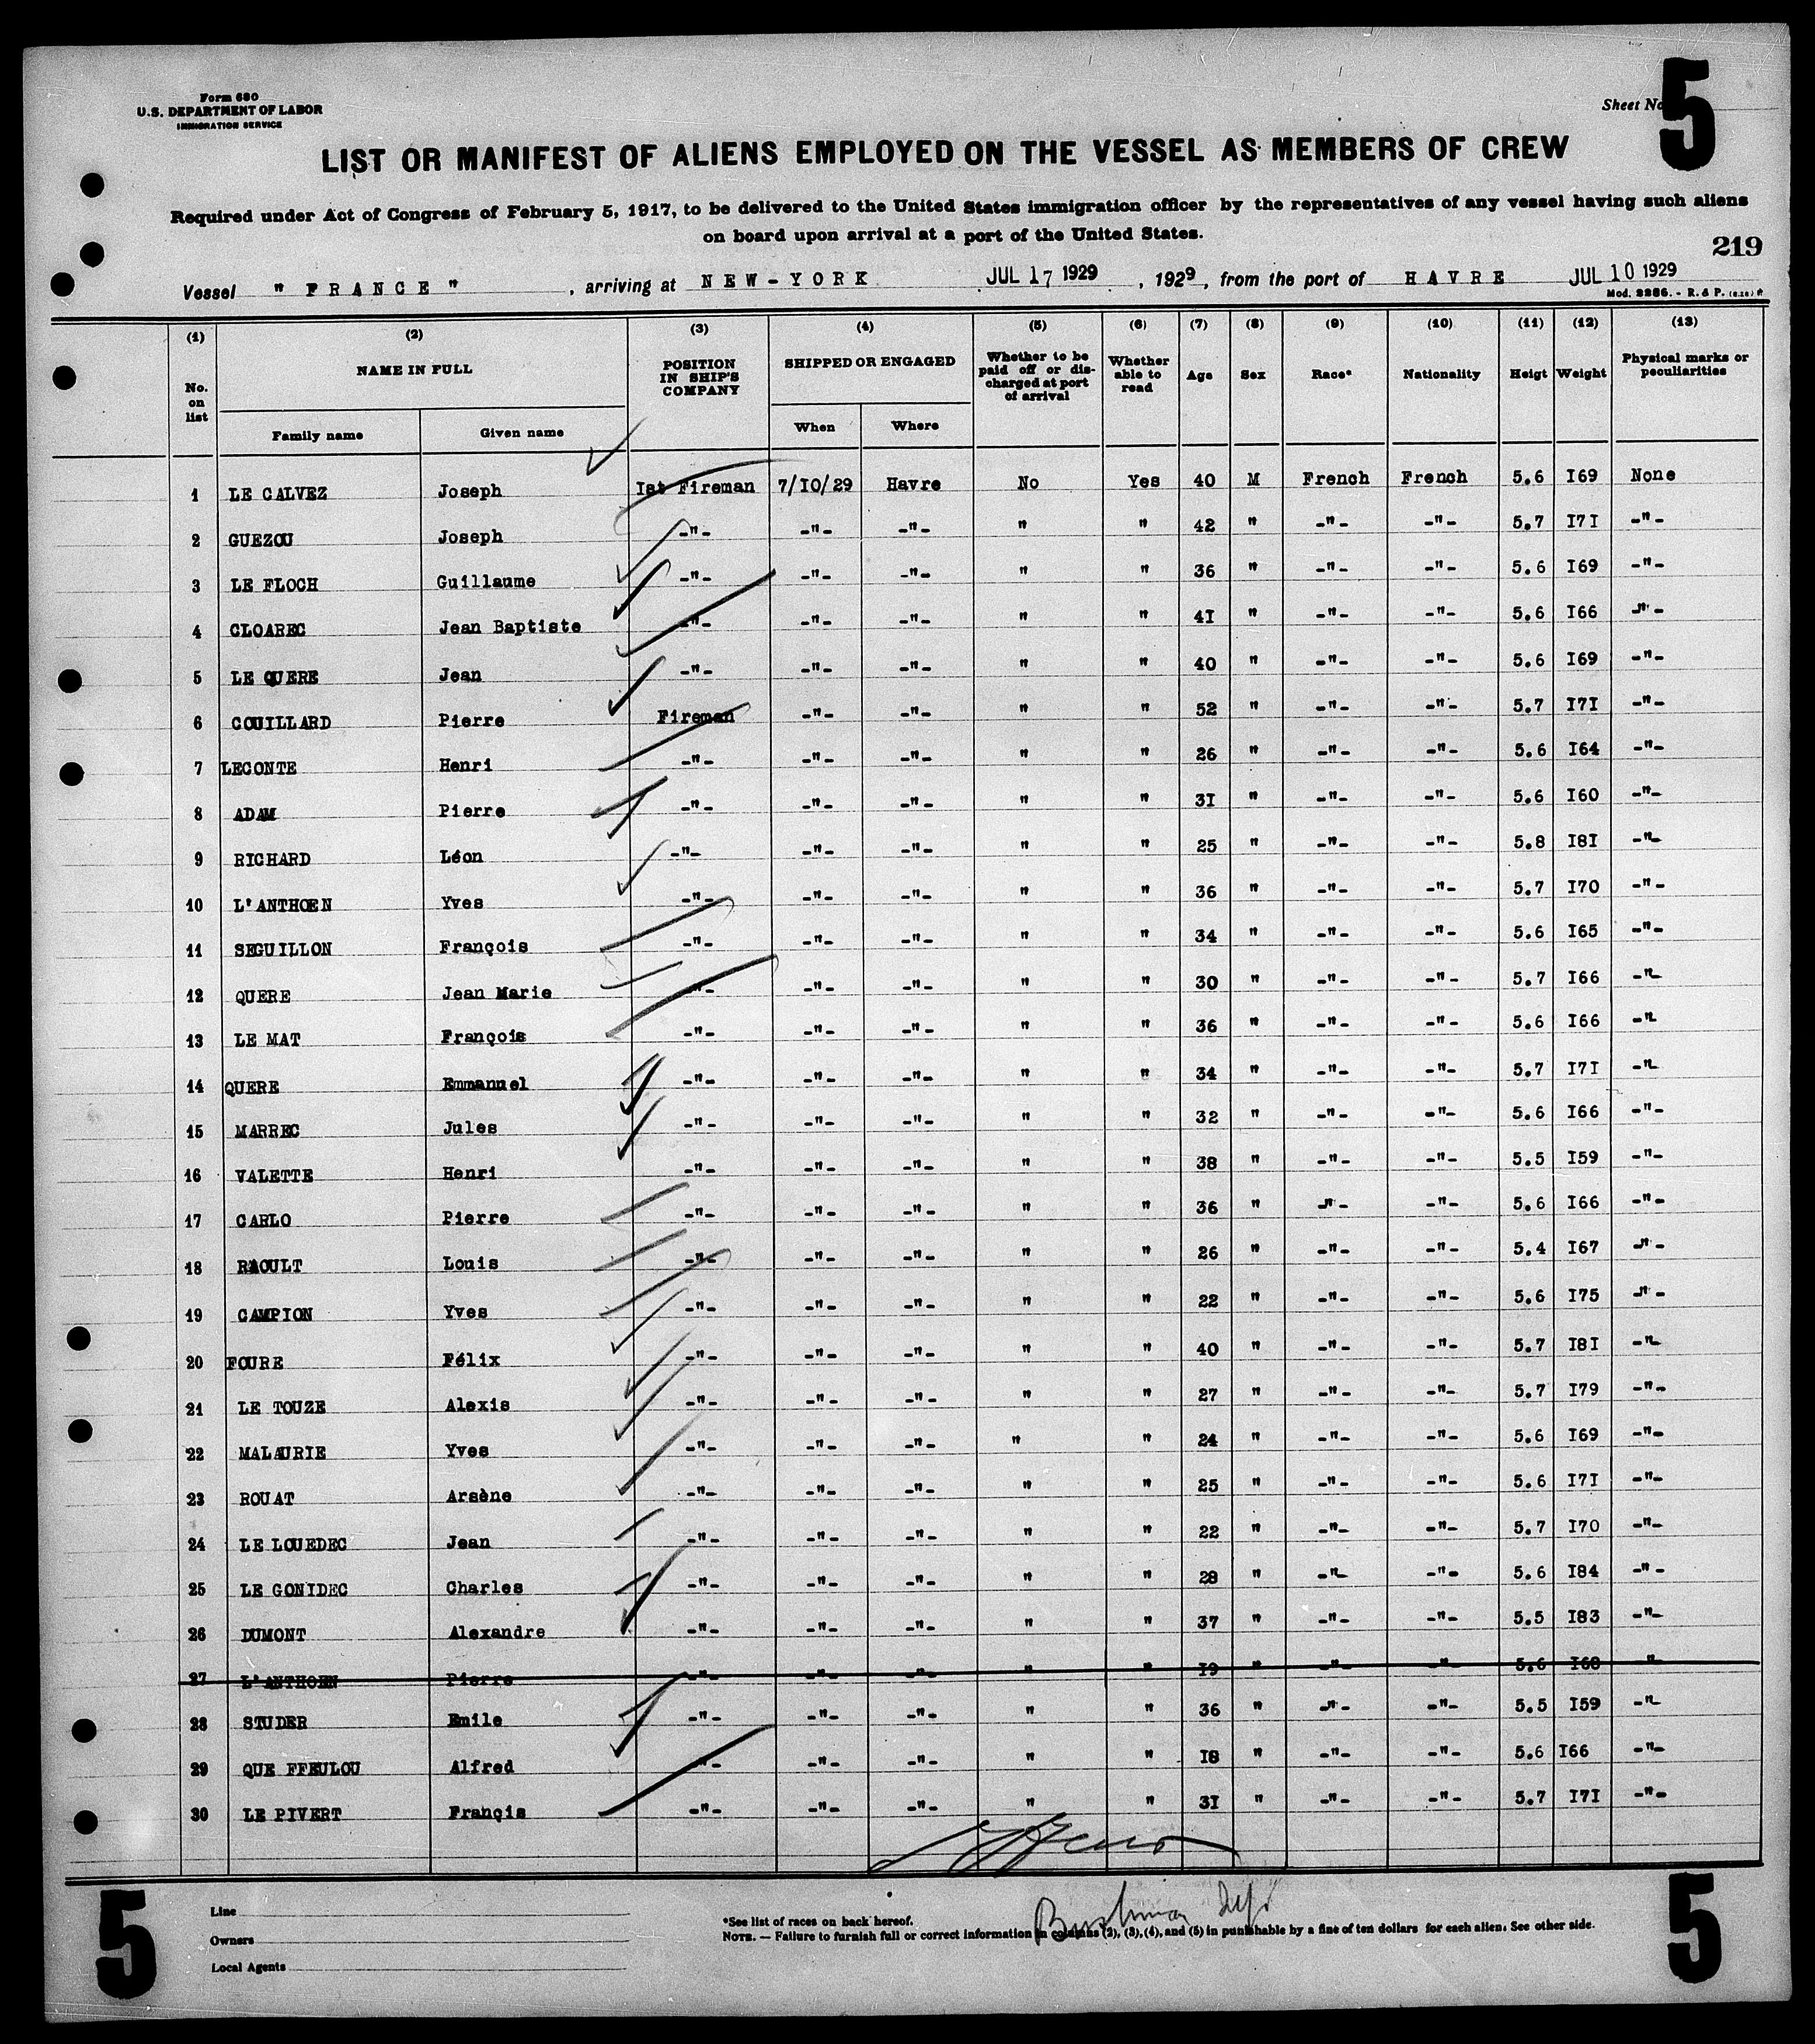 Form 680
U.S. DEPARTMENT OF LABOR
IMMIGRATION SERVICE
Sheet No 5
LIST OR MANIFEST OF ALIENS EMPLOYED ON THE VESSEL AS MEMBERS OF CREW
Required under Act of Congress of February 5, 1917, to be delivered to the United States immigration officer by the representatives of any vessel having such aliens
on board upon arrival at a port of the United States.
219
Vessel " FRANCE " , arriving at NEW-YORK JUL 17 1929 , 1929, from the port of HAVRE JUL 10 1929
Mod. 2286. - R. & P.
(1) (2) (3) (4) (5) (6) (7) (8) (9) (10) (11) (12) (13)
No. on list NAME IN FULL Family name Given name POSITION IN SHIP'S COMPANY SHIPPED OR ENGAGED When Where Whether to be paid off or discharged at port of arrival Whether able to read Age Sex Race* Nationality Heigt Weight Physical marks or peculiarities
1 LE CALVEZ Joseph Ist Fireman 7/IO/29 Havre No Yes 40 M French French 5.6 I69 None
2 GUEZOU Joseph -"- -"- -"- " " 42 " -"- -"- 5.7 I7I -"-
3 LE FLOCH Guillaume -"- -"- -"- " " 36 " -"- -"- 5.6 I69 -"-
4 CLOAREC Jean Baptiste -"- -"- -"- " " 4I " -"- -"- 5.6 I66 -"-
5 LE QUERE Jean -"- -"- -"- " " 40 " -"- -"- 5.6 I69 -"-
6 COUILLARD Pierre Fireman -"- -"- " " 52 " -"- -"- 5.7 I7I -"-
7 LECONTE Henri -"- -"- -"- " " 26 " -"- -"- 5.6 I64 -"-
8 ADAM Pierre -"- -"- -"- " " 3I " -"- -"- 5.6 I60 -"-
9 RICHARD Léon -"- -"- -"- " " 25 " -"- -"- 5.8 I8I -"-
10 L'ANTHOEN Yves -"- -"- -"- " " 36 " -"- -"- 5.7 I70 -"-
11 SEGUILLON François -"- -"- -"- " " 34 " -"- -"- 5.6 I65 -"-
12 QUERE Jean Marie -"- -"- -"- " " 30 " -"- -"- 5.7 I66 -"-
13 LE MAT François -"- -"- -"- " " 36 " -"- -"- 5.6 I66 -"-
14 QUERE Emmanuel -"- -"- -"- " " 34 " -"- -"- 5.7 I7I -"-
15 MARREC Jules -"- -"- -"- " " 32 " -"- -"- 5.6 I66 -"-
16 VALETTE Henri -"- -"- -"- " " 38 " -"- -"- 5.5 I59 -"-
17 CARLO Pierre -"- -"- -"- " " 36 " -"- -"- 5.6 I66 -"-
18 RAOULT Louis -"- -"- -"- " " 26 " -"- -"- 5.4 I67 -"-
19 CAMPION Yves -"- -"- -"- " " 22 " -"- -"- 5.6 I75 -"-
20 FOURE Félix -"- -"- -"- " " 40 " -"- -"- 5.7 I8I -"-
21 LE TOUZE Alexis -"- -"- -"- " " 27 " -"- -"- 5.7 I79 -"-
22 MALAURIE Yves -"- -"- -"- " " 24 " -"- -"- 5.6 I69 -"-
23 ROUAT Arsène -"- -"- -"- " " 25 " -"- -"- 5.6 I7I -"-
24 LE LOUEDEC Jean -"- -"- -"- " " 22 " -"- -"- 5.7 I70 -"-
25 LE GONIDEC Charles -"- -"- -"- " " 28 " -"- -"- 5.6 I84 -"-
26 DUMONT Alexandre -"- -"- -"- " " 37 " -"- -"- 5.5 I83 -"-
27 L'ANTHOEN Pierre -"- -"- -"- " " I9 " -"- -"- 5.6 I60 -"-
28 STUDER Emile -"- -"- -"- " " 36 " -"- -"- 5.5 I59 -"-
29 QUE FFEULOU Alfred -"- -"- -"- " " I8 " -"- -"- 5.6 I66 -"-
30 LE PIVERT Françis -"- -"- -"- " " 3I " -"- -"- 5.7 I7I -"-
5 5
Line
Owners
Local Agents
*See list of races on back hereof.
NOTE. — Failure to furnish full or correct information in columns (2), (3), (4), and (5) in punishable by a fine of ten dollars for each alien. See other side.